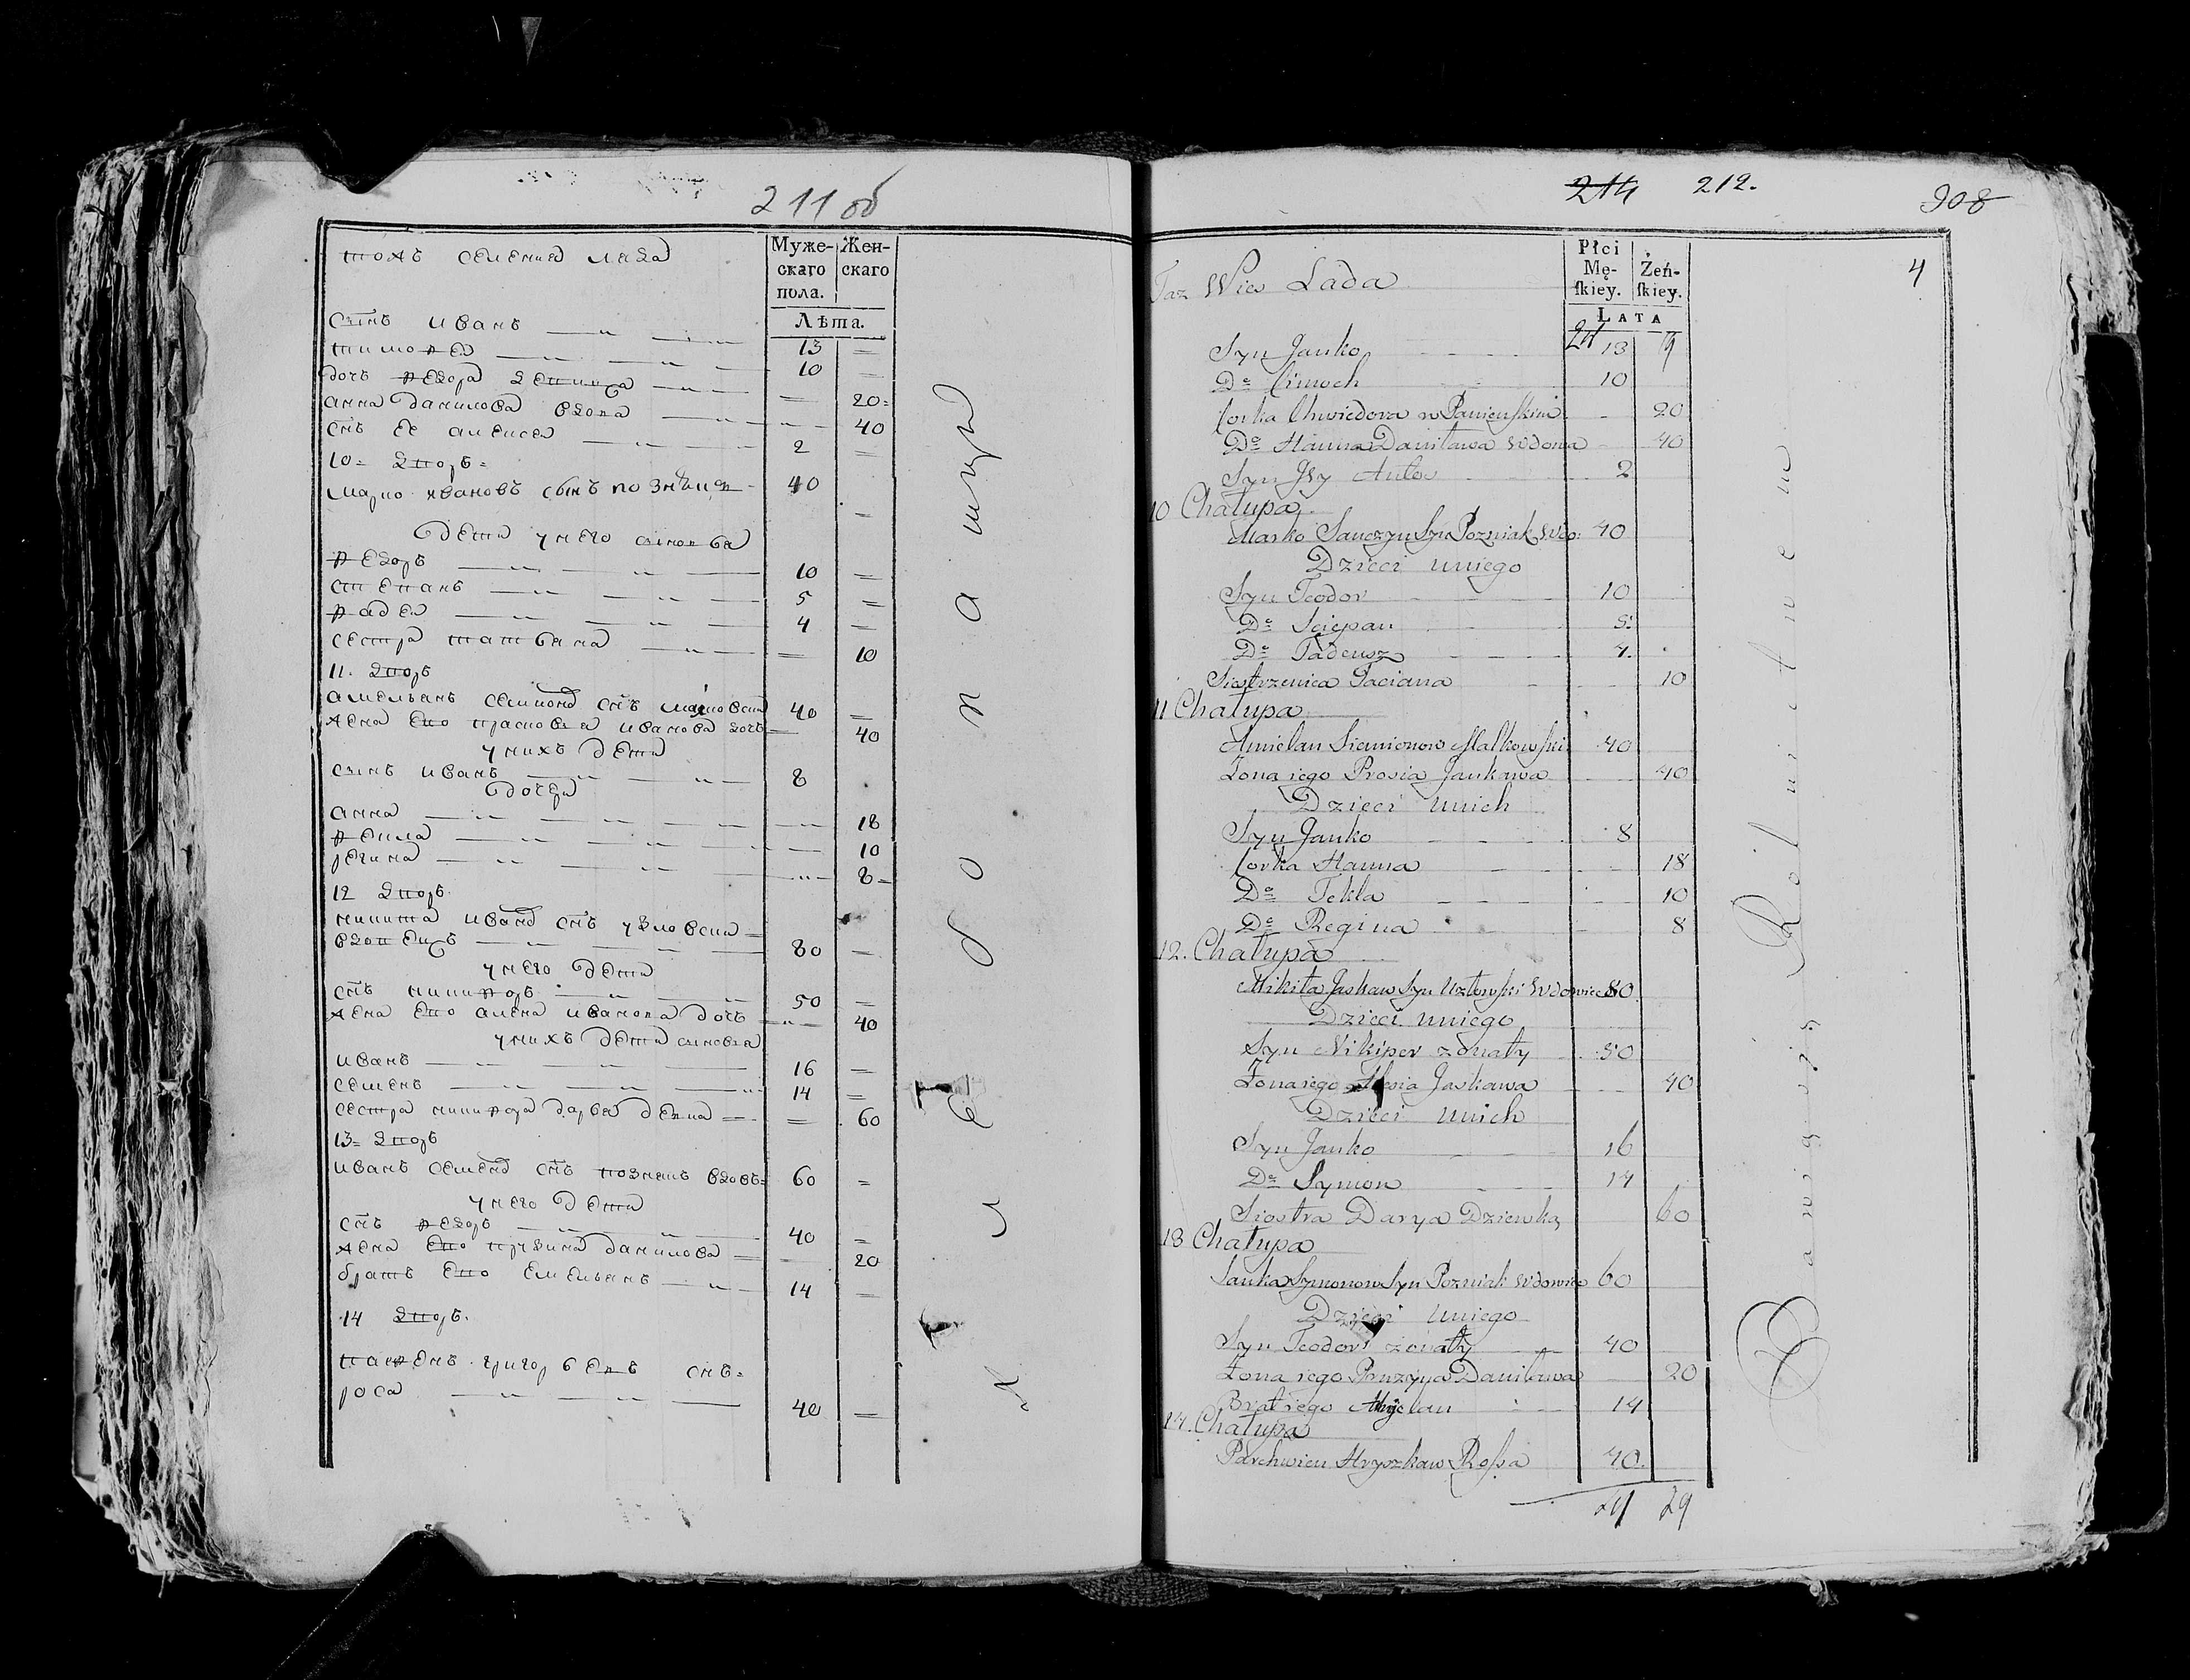 211 об
тожъ селения лада
Муже-
скаго
пола.
Жен-
скаго
Лѣта.
сынъ иванъ 13 =
тимофей 10 =
дочъ федора девица = 20 =
анна данилова вдова 40
снъ ее алексей 2 =
10 = дворъ =
марко ивановъ сынъ познякъ 40
дети у него сыновья
федоръ 10 =
степанъ 5 =
фадей 4 =
сестра татьяна = 10
11. дворъ
амельянъ семионов снъ 40 =
жена ево прасковья иванова дочъ 40
у нихъ дети
сынъ иванъ 8
дочери
анна 18
фекла 10
регина 8 =
12 дворъ
никита иванов снъ узловски =
вдовецъ 80 —
у него дети
снъ никифоръ 50 =
жена ево алена иванова дочъ 40
у нихъ дети сыновья
иванъ 16 =
семенъ 14 =
сестра никифора дарья девка = = 60
13 = дворъ
иванъ семенов снъ познякъ вдовъ = 60 =
у него дети
снъ федоръ 40 =
жена ево данилова = 20
братъ ево емельянъ 14 =
14 дворъ.
парфенъ григорьевъ снъ =
роса 40 =
214 212.
908
4
Taż Wieś Łada
Płci
Mę-
ſkiey.
Żeń-
ſkiey.
LATA
24 19
Syn Janko 13
Do Cimoch 10
Corka Chwiedora w Panieńskim 20
Do Hanna Daniława Wdowa 40
Syn 2
10 Chałupa
Marko Janczyn Syn Pozniak Wdo: 40
Dzieci uniego
Syn Teodor 10
Do Sciepan 5.
Do Tadeusz 4.
Siostrzenica Taciana 10
11 Chałupa
Amielan Siemionow Małkowski 40
Żona iego Prosia Jankawa 40
Dzieci unich
Syn Janko 8
Corka Hanna 18
Do Tekla 10
Do Regina 8
12. Chałupa
Mikita Jaskaw Syn Uzłowski Wdowiec 80.
Dzieci uniego
Syn Nikiper żonaty 50
Żona iego Jaskawa 40
Dzieci unich
Syn Janko 16
Do Symon 14
Siostra Darya Dziewka 60
13 Chałupa
Janka Symonow Syn Pozniak Wdowiec 60
Dzieci uniego
Syn Teodor żonaty 40
Żona iego Daniława 20
Brat iego 14
14. Chałupa
Parchwien Hryszkaw Roſsa 40.
24 29